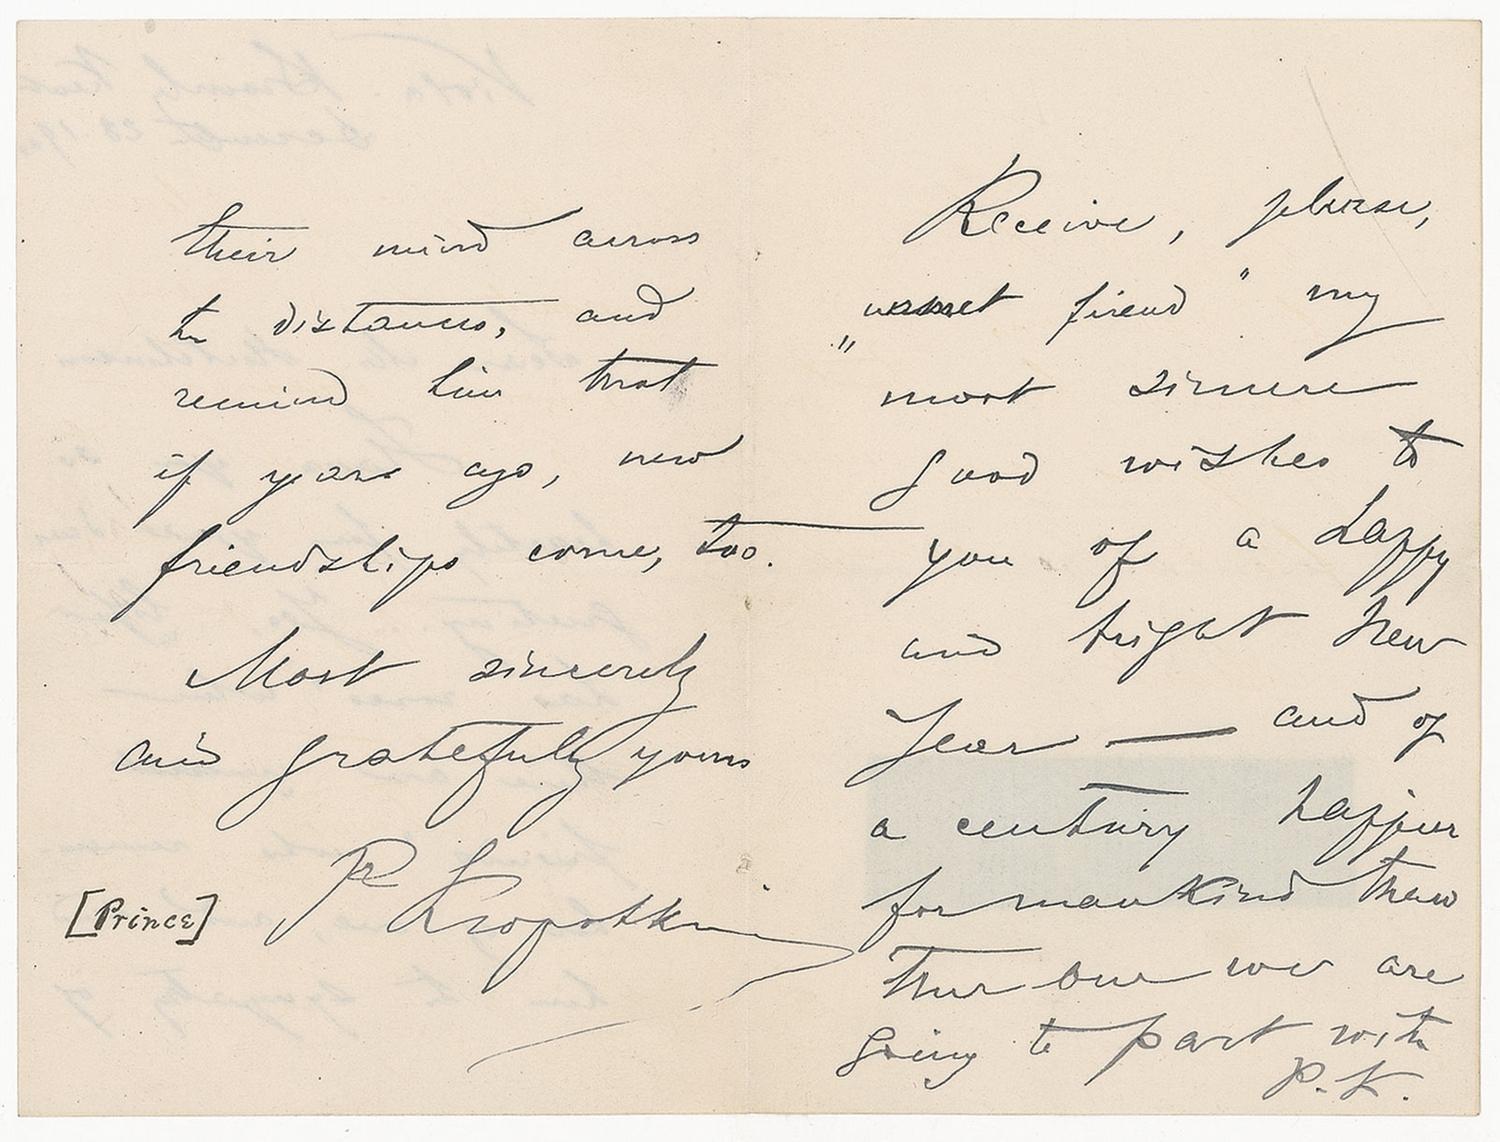 their mind across
the distances, and
remind him that
if years ago, new
friendships come, too.
Most sincerely
and gratefully yours
P. Kropotkin
[Prince]
Receive, please,
„unmet friend" my
most sincere
good wishes to
you of a happy
and bright New
Year — and of
a century happier
for mankind than
the one we are
going to part with
P.K.